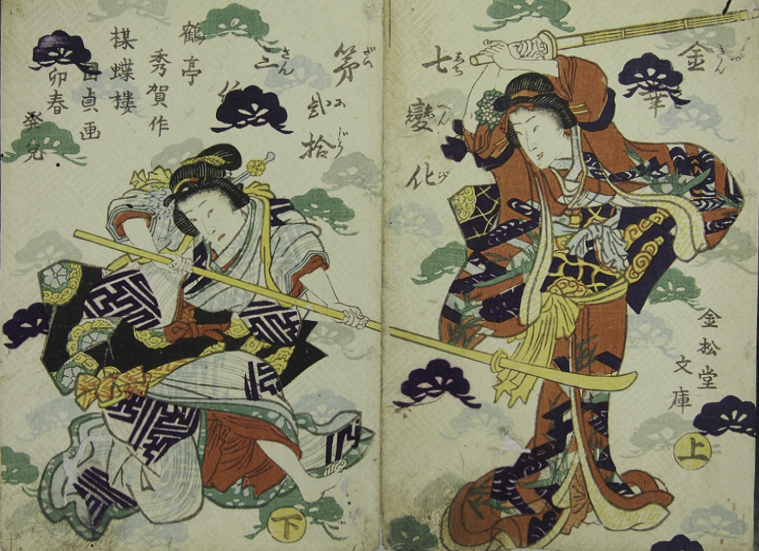 金華
七變化
金松堂
文庫
上
第弐拾
鶴亭
秀賀作
楳蝶樓
国貞画
卯春
発兌
下